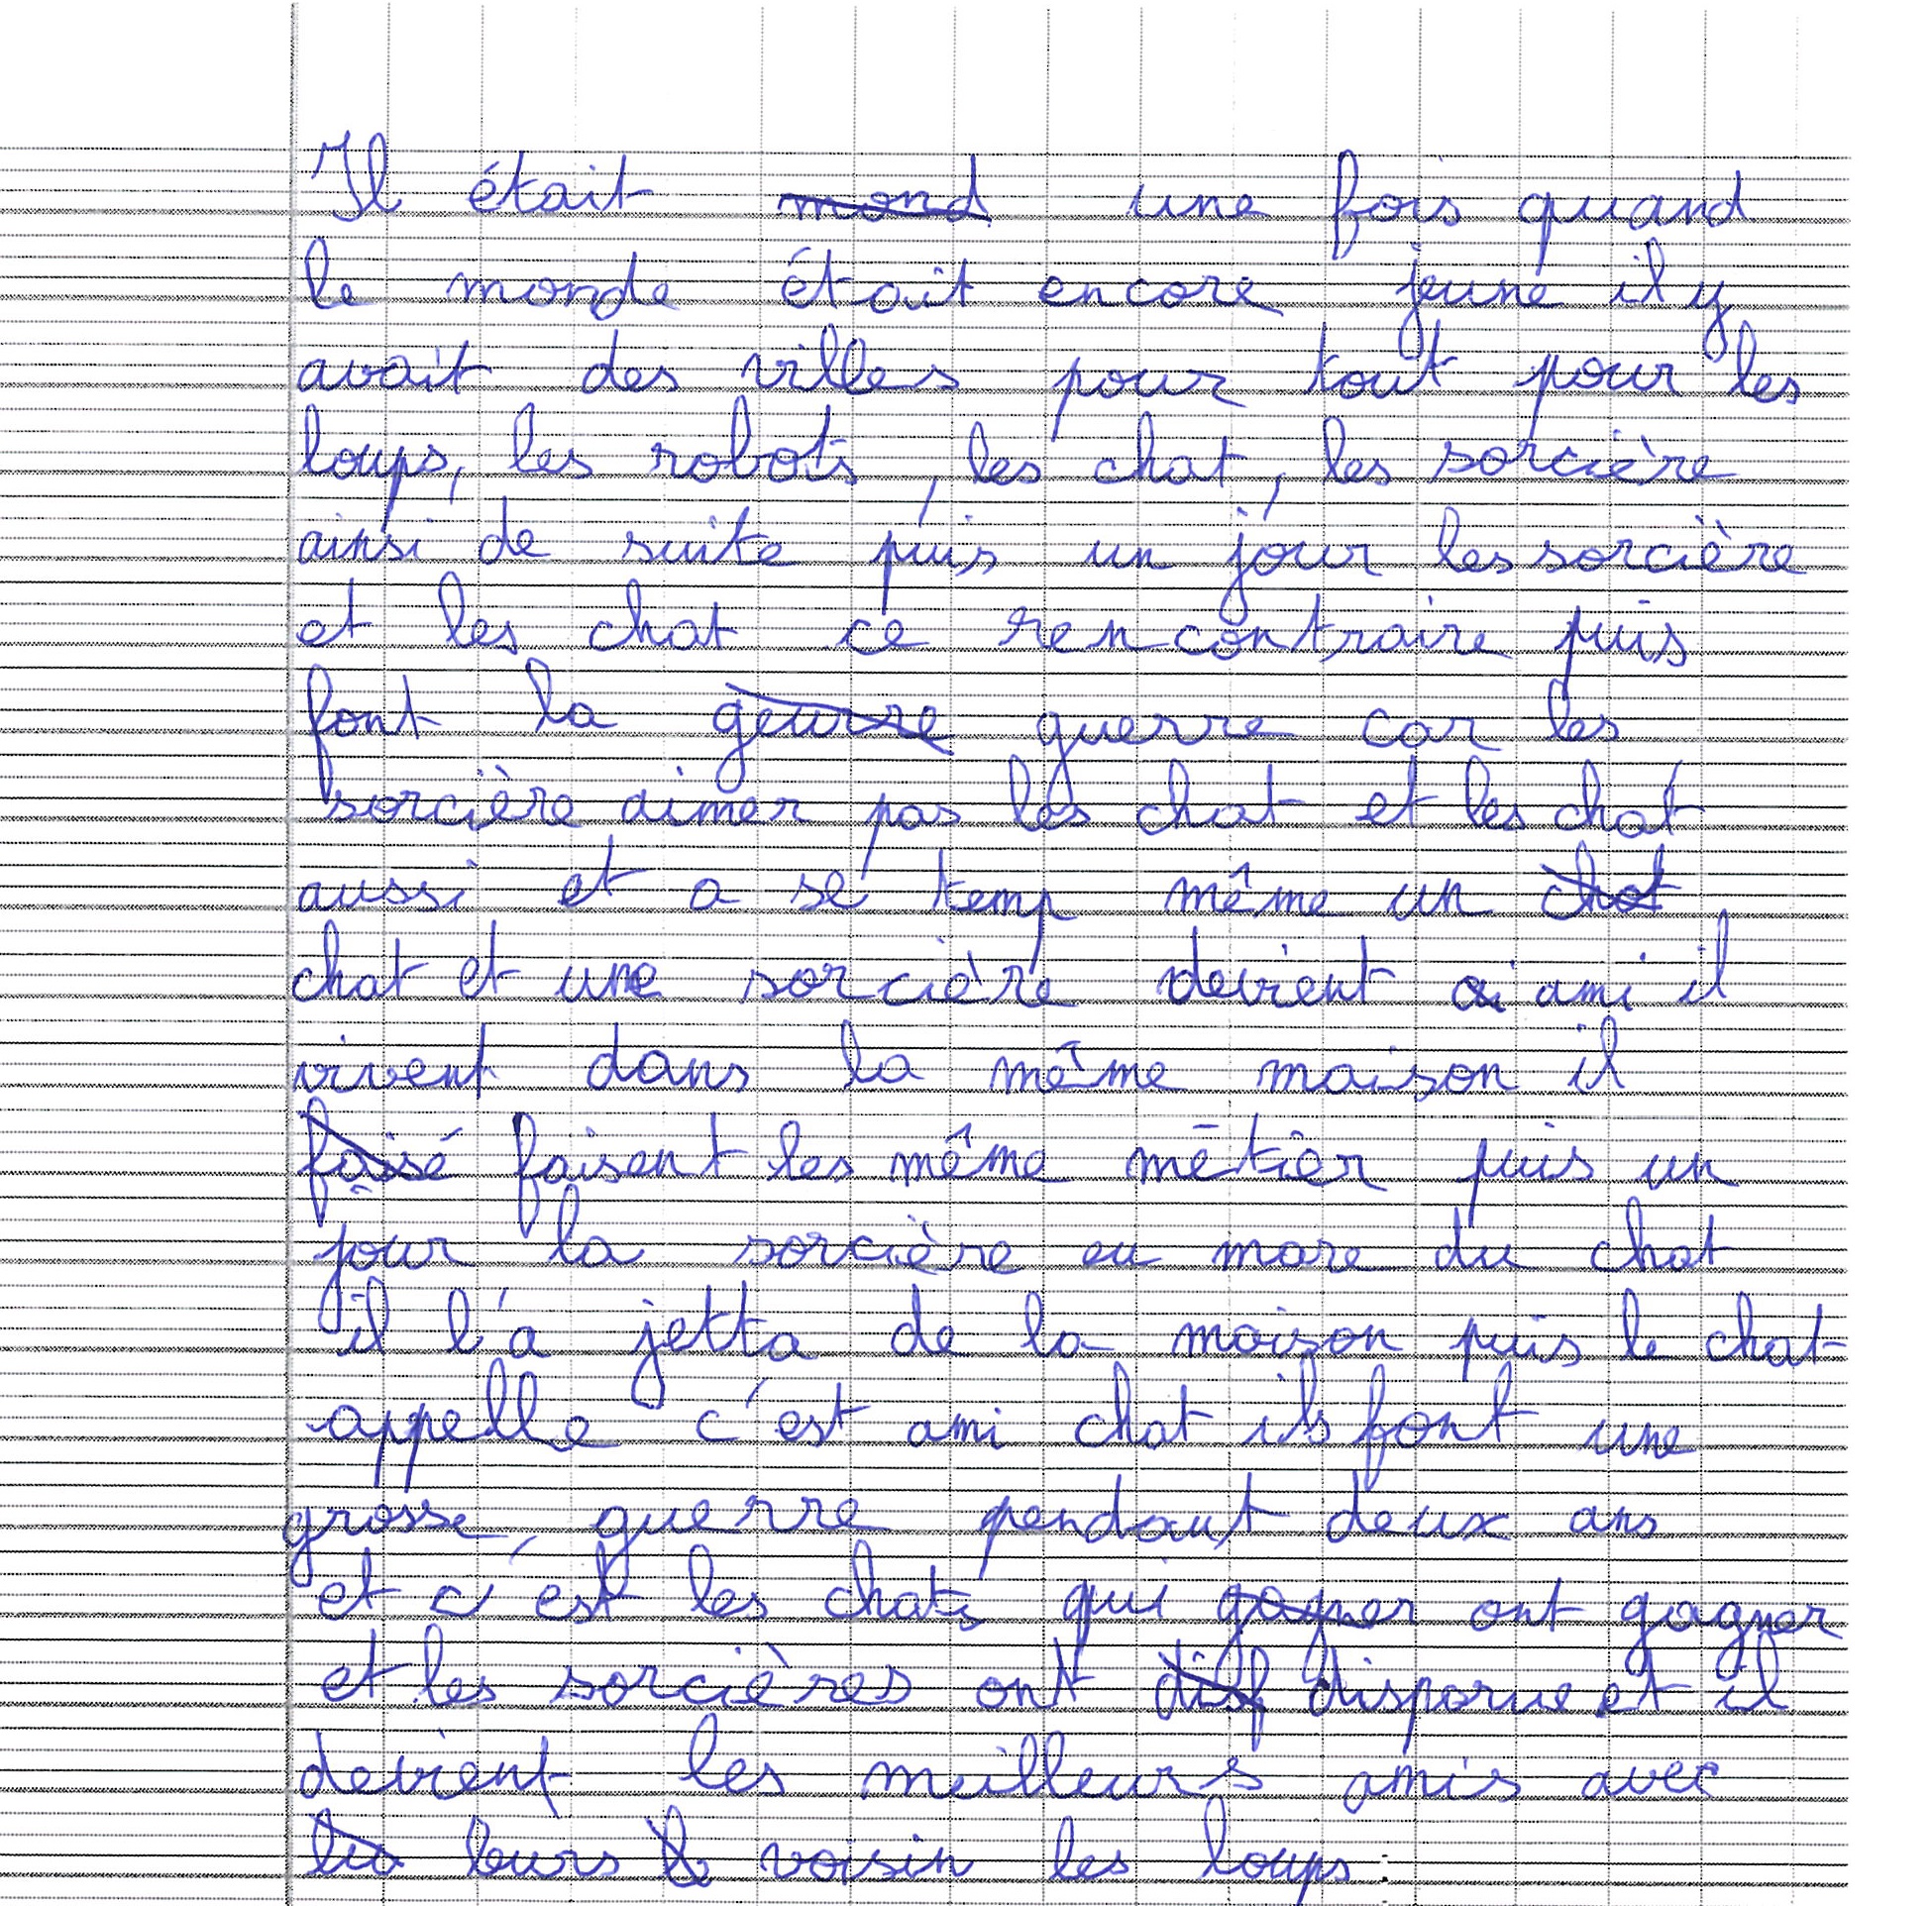 Il était mond une fois quand
le monde était encore jeune il y
avait des villes pour tout pour les
loups, les robots, les chat, les sorcière
ainsi de suite puis un jour les sorcière
et les chat ce rencontraire puis
font la geurre guerre car les
sorcière aimer pas les chat et les chat
aussi et a se temp même un chat
chat et une sorcière devient ai ami il
vivent dans la même maison il
faisé faisent les même métier puis un
jour la sorcière eu mare du chat
il l'a jetta de la maison puis le chat
appelle c'est ami chat ils font une
grosse guerre pendant deux ans
et c'est les chats qui gagner ont gagner
et les sorcières ont disp disparue et il
devient les meilleurs amis avec
leurs voisin les loups.